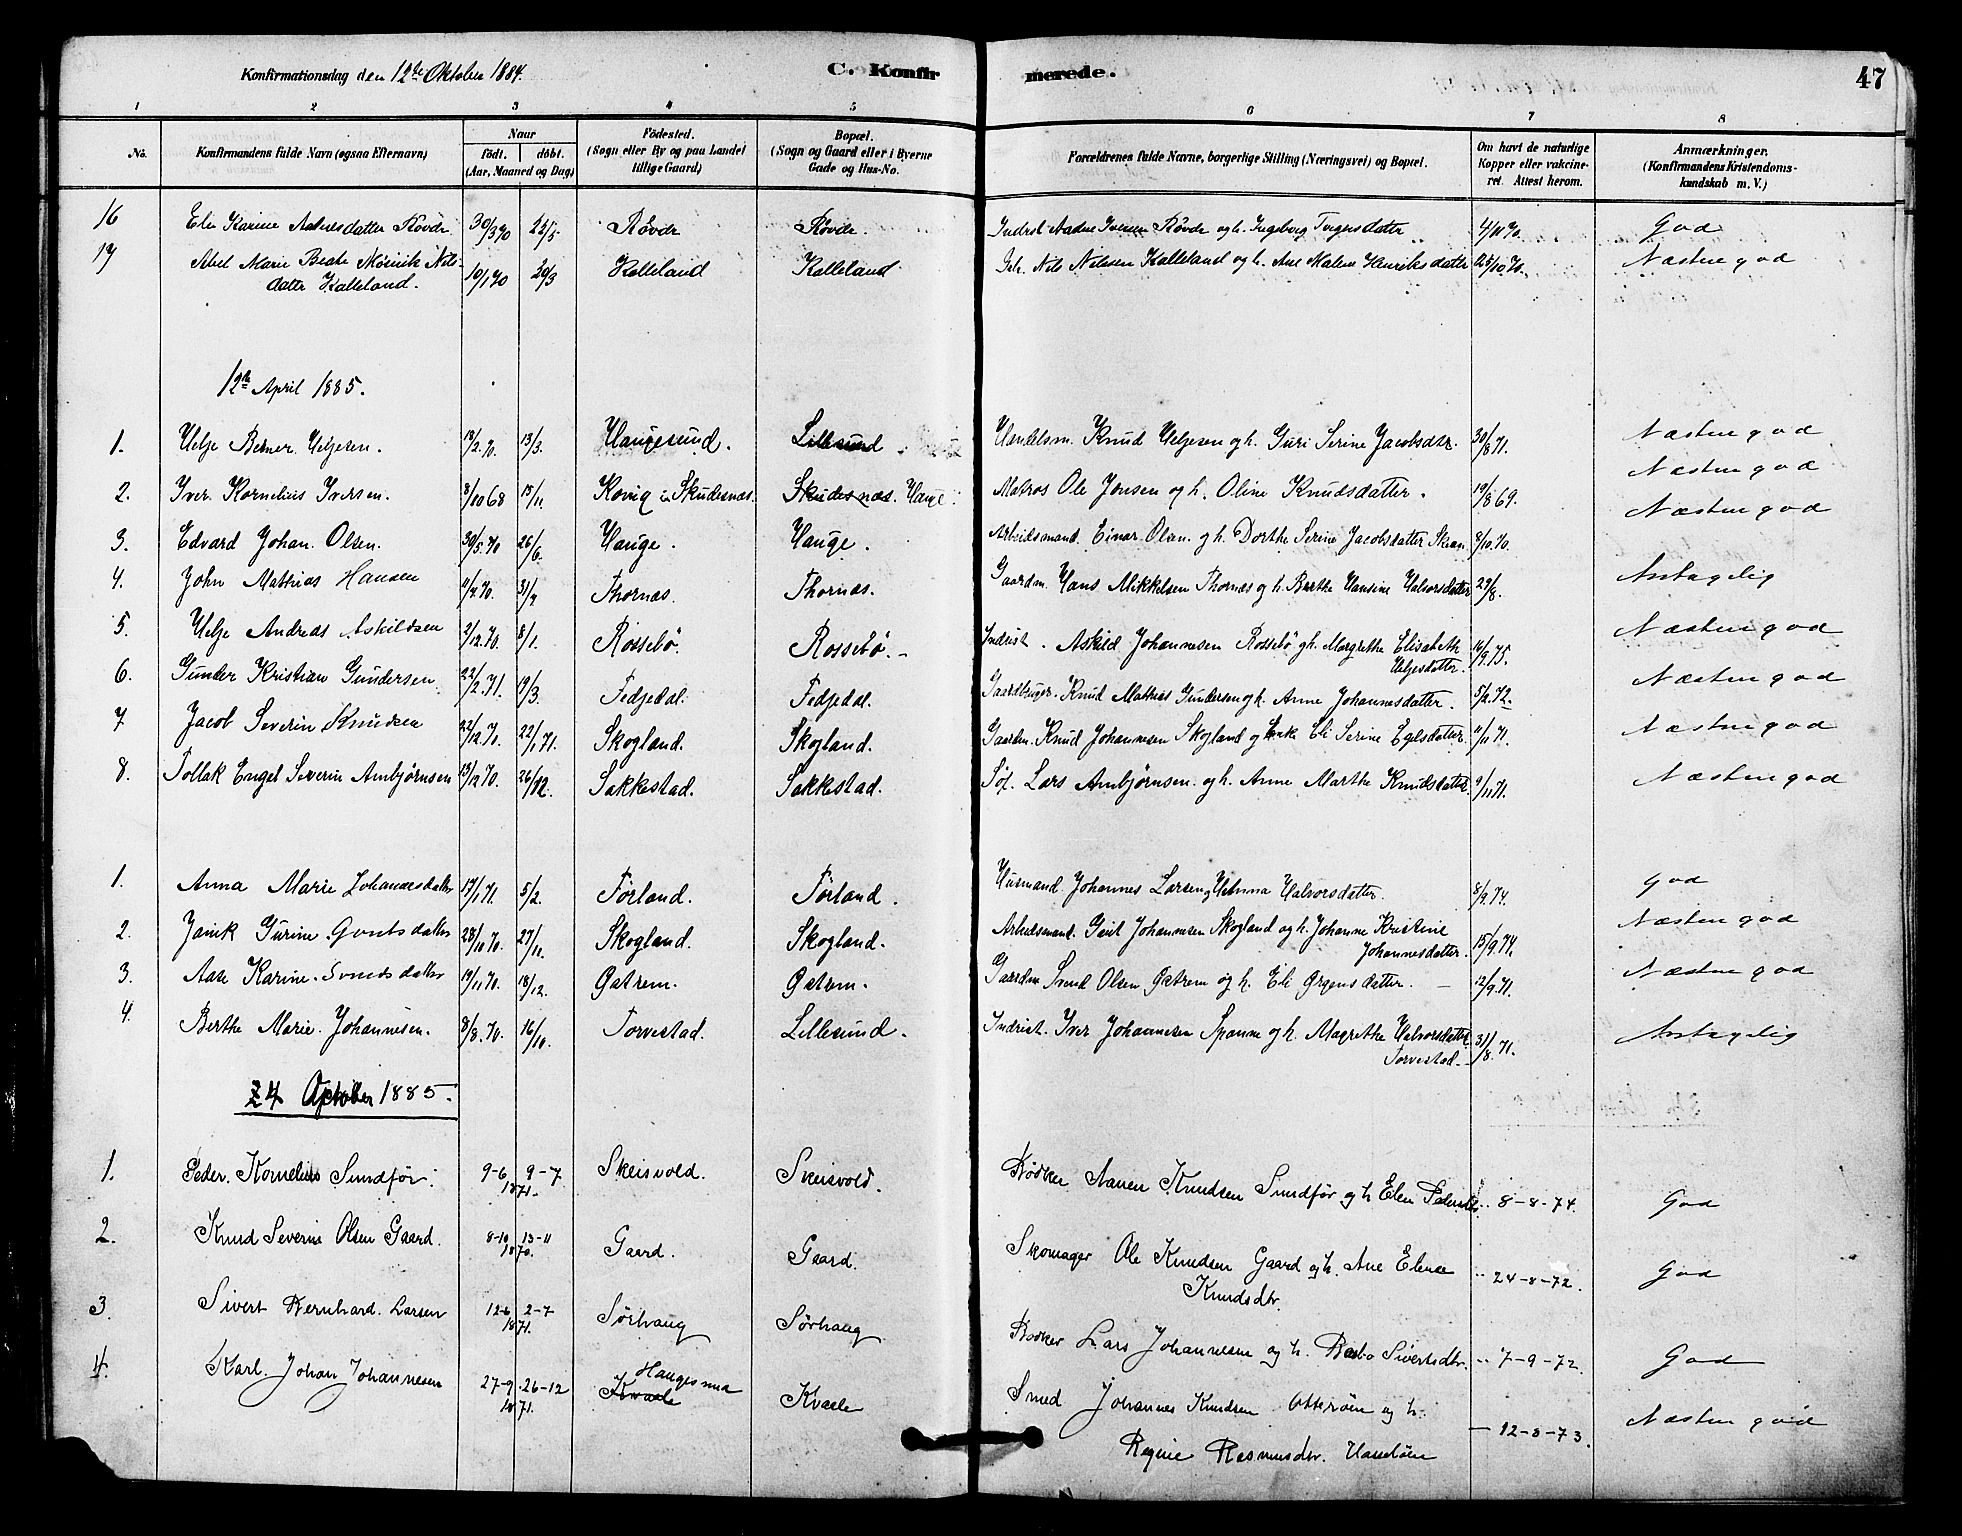 Konfirmationsdag den 12te Oktober 1884.
C. Konfirmerede.
47
1 2 3 4 5 6 7 8
No.
Konfirmandens fulde Navn (ogsaa Efternavn)
Naar
födt. döbt.
(Aar, Maaned og Dag)
Födested.
(Sogn eller By og paa Landet
tillige Gaard)
Bopæl.
(Sogn og Gaard eller i Byerne
Gade og Hus-No.
Forældrenes fulde Navne, borgerlige Stilling (Næringsvei) og Bopæl.
Om havt de naturlige
Kopper eller vakcine-
ret. Attest herom.
Anmærkninger.
(Konfirmandens Kristendoms-
kundskab m. V.)
16 Eli Karine Aadnesdatter Røvde 30/3 70 22/5 Røvde Røvde. Indrst. Aadne Iversen Røvde og h. Ingeborg Torgersdatter 4/11 70. God
17 Abel Marie Beate Mønnik Nils-
datter Kalleland. 10/1 70 20/3 Kalleland Kalleland Nils Nilsen Kalleland og h. Ane Malene Henriksdatter 25/10 70. Næsten god
12te April 1885.
1. Helje Berner Heljesen. 13/2.70. 13/3. Haugesund. Lillesund Handelsm. Knud Heljesen og h. Guri Serine Jacobsdtr. 30/8 71. Næsten god
2. Iver Kornelius Iversen. 8/10 68 15/11. Kovig i Skudesnæs. Skudesnæs. Hauge. Matros Ole Jensen og h. Oline Knudsdatter. 19/8 69. Næsten god
3. Edvard Johan Olsen. 30/5.70 26/6. Hauge. Hauge. Arbeidsmand Einar Olsen og h. Dorthe Serine Jacobsdatter 8/10.70. Næsten god
4. John Mathias Hansen Thornæs. Thornæs. Gaardm. Hans Mikkelsen Thornæs og h. Berthe Hansine Halvorsdatter 29/8. Antagelig
5. Helje Andreas Askildsen 2/12.70. 8/1. Rossebø. Rossebø. Indrist. Askild Johannesen Rossebø og h. Margrethe Elisabeth
Heljesdatter. 16/9.75. Næsten god
6. Gunder Kristian Gundersen 22/2.71. 19/3. Fedjedal. Fedjedal. Gaardbruger. Knud Mathias Gundersen og h. Anne Johannesdatter. 5/2.72. Næsten god
7 Jacob Severin Knudsen 22/12.70. 22/1 71. Skogland. Skogland. Gaardm. Knud Johannesen Skogland og Enk Eli Serine Egelsdatter. 11/11 71. Næsten god
8. Tollak Engel Severin Ambjørnsen 13/12 70. 26/12. Sakkestad. Sakkestad. Søf. Lars Ambjørnsen og h. Anne Marthe Knudsdatter. 9/11 71. Næsten god
1. Anna Marie Johannesdatter 17/1 71. 5/2. Førland. Førland. Husmand. Johannes Larsen og Helmina Halvorsdatter. 8/9 74. God
2. Janik Gurine Geritsdatter 28/10 70. 27/11. Skogland. Skogland. Arbeidsmand. Gerit Johannesen Skogland og h. Johanne Kristine
Johannesdatter. 15/9 74. Næsten god
3. Aase Karine Svendsdatter 19/11 70. 18/12. Østrem. Østrem. Gaardm Svend Olsen Østrem og h. Eli Ørgensdatter. 12/9 71. Næsten god
4. Berthe Marie Johannesen. 8/8.70. 16/10. Torvestad. Lillesund. Indrist. Iver Johannesen Spanne og h. Magrethe Halvorsdatter
Torvestad. 31/8 71. Antagelig
24 Oktober 1885.
1. Peder Kornelius Sundfør. 9-6 9-7 1871. Skeisvold. Skeisvold. Bødker Aanen Knudsen Sundfør og h Elen Pedersdtr. 8-8-74. God
2. Knud Severin Olsen Gaard. 8-10 13-11 1870. Gaard. Gaard. Skomager Ole Knudsen Gaard og h. Ane Elene
Knudsdtr. 24-8-72. God
3. Sivert Bernhard Larsen 12-6 2-7 1871. Sørhaug Sørhaug Bødker Lars Johannesen og h. Sivertsdtr. 7-9-72. God
4. Karl Johan Johannesen 27-9 26-12 1871. Haugesund
Kvaale Kvaale Smed Johannes Knudsen Otterøen og h.
Regine Rasmusdtr. Hasseløen 12-8-73. Næsten god